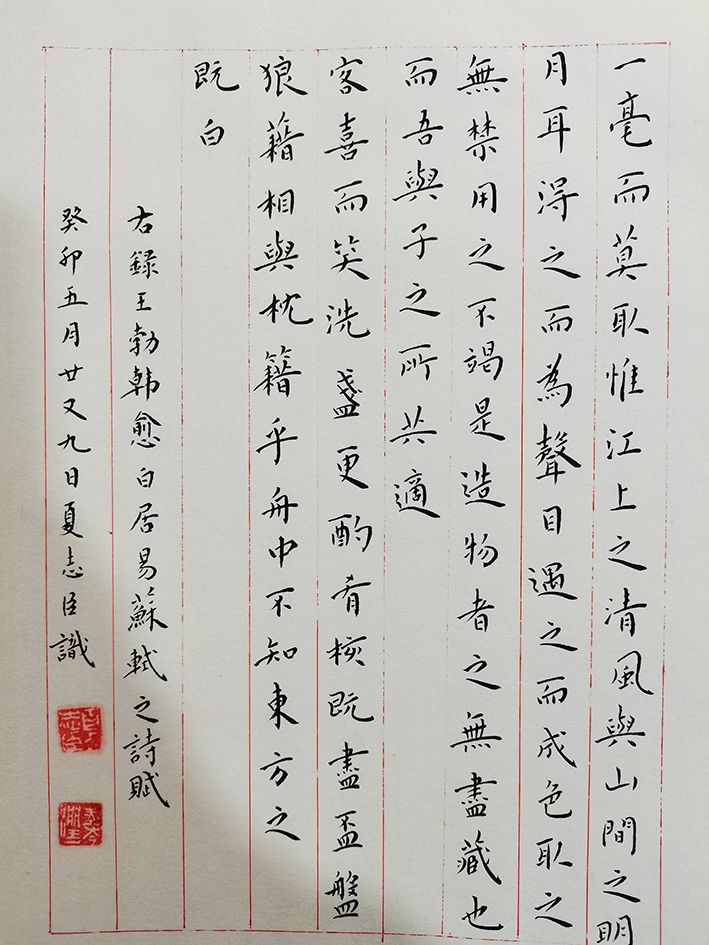 一毫而莫取惟江上之清風與山間之明
月耳得之而為聲目遇之而成色取之
無禁用之不竭是造物者之無盡藏也
而吾與子之所共適
客喜而笑洗盞更酌肴核既盡盃盤
狼藉相與枕籍乎舟中不知東方之
既白
右錄王勃韓愈白居易蘇軾之詩賦
癸卯五月廿又九日夏志臣識